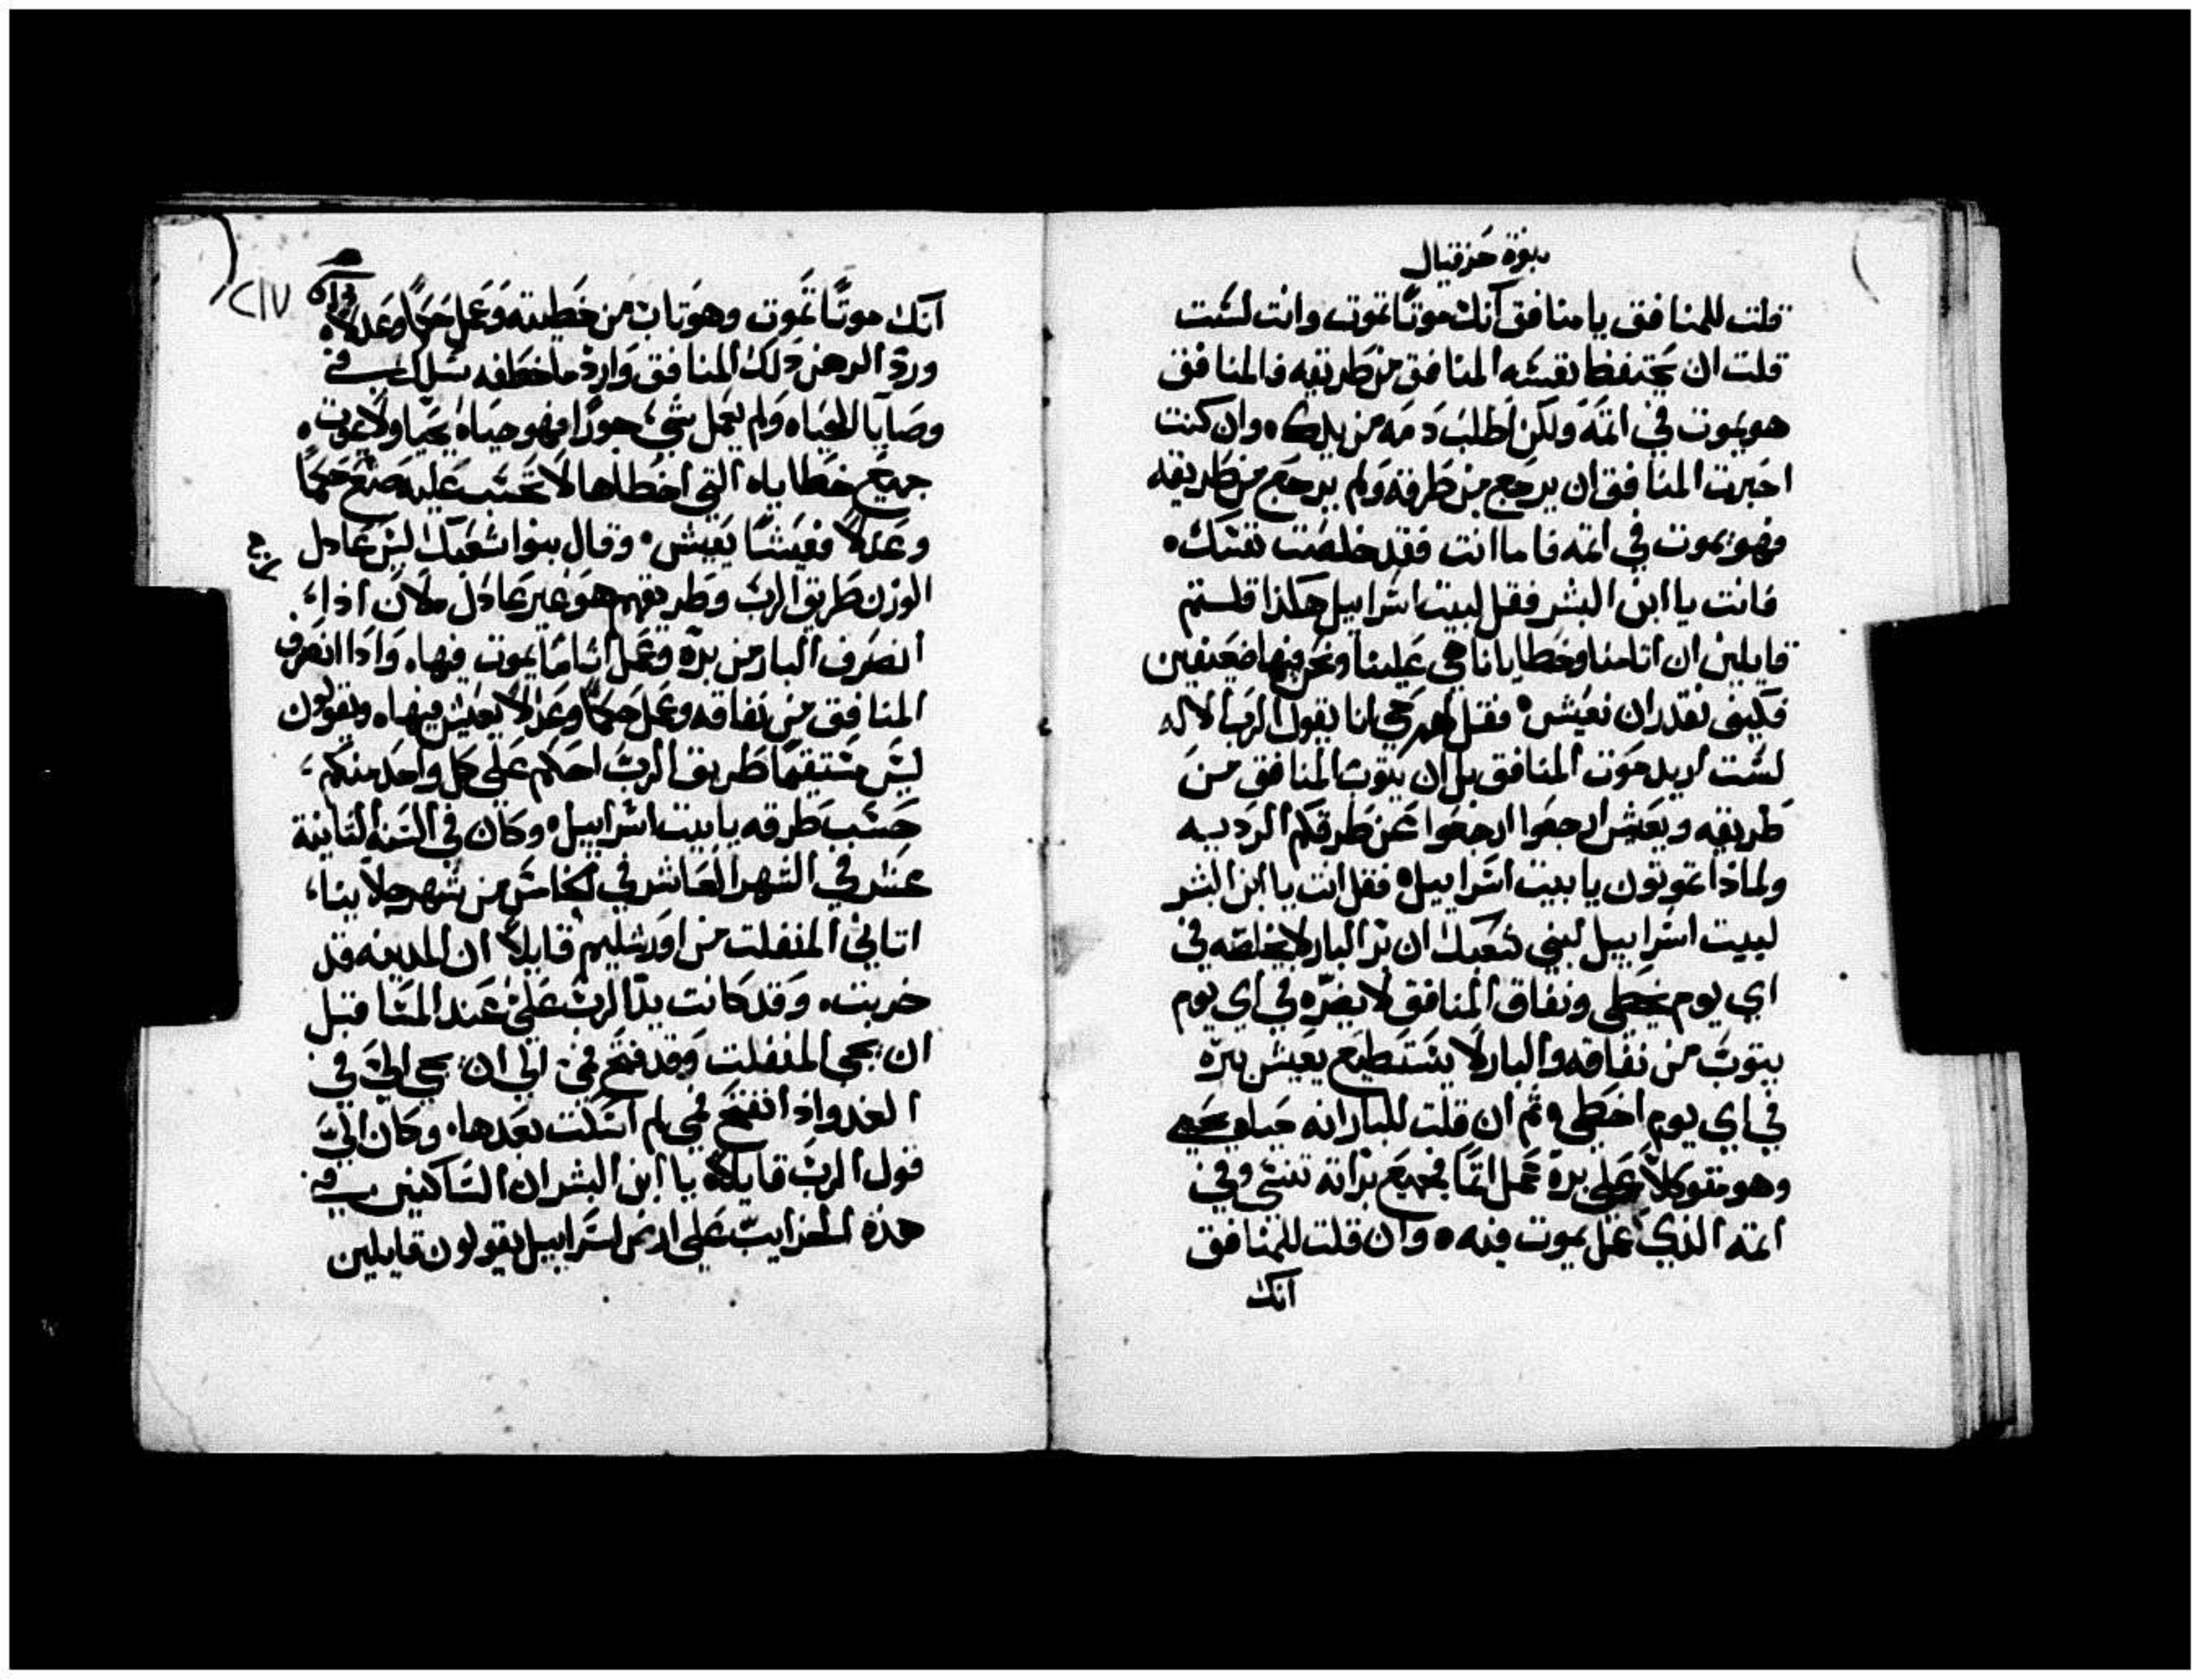 نبوة حزقيال
قلت للمنافق يا منافق انك موتًا تموت وانت لست
قلت ان يحتفظ نفسه المنافق من طريقه فالمنافق
هو يموت في اثمه ولكن اطلب دمه من يدك ٥ وان كنت
اخبرت المنافق ان يرجع من طرقه ولم يرجع من طريقه
فهو يموت في اثمه فاما انت فقد خلصت نفسك ٥
فانت يا ابن البشر فقل لبيت اسراييل هكذا قلتم
قايلين ان اثامنا وخطايانا هي علينا ونحن فيها ضعيفين
فكيف نقدر ان نعيش ٥ فقل لهم حي انا يقول الرب الاله
لست اريد موت المنافق بل ان يتوب المنافق من
طريقه ويعش ارجعوا ارجعوا عن طرقكم الرديه
ولماذا تموتون يا بيت اسراييل ٥ فقل انت يا ابن البشر
لبيت اسراييل لبني شعبك ان بر البار لا يخلصه في
اي يوم يخطي ونفاق المنافق لا يضره في اي يوم
يتوب من نفاقه والبار لا يستطيع يعيش ببره
في اي يوم اخطي ٥ ثم ان قلت للبار انه حياه يحيي
وهو متوكلاً على بره عمل اثمًا فجميع براته تنسى وفي
اثمه الذي عمل يموت فيه ٥ وان قلت للمنافق
انك
٢١٧
انك موتًا تموت وهو تاب من خطيته وعمل حكمًا وعدلاً ٥
ورد الرهن ذلك المنافق وارد ما خطفه سلك في
وصايا الحياه ولم يعمل شيء جورًا فهو حياه يحيا ولا يموت ٥
جميع خطاياه التي اخطاها لا تحسب عليه صنع حكمًا
وعدلاً فعيشًا يعيش ٥ وقال بنوا شعبك ليس عادل
الوزن طريق الرب وطريقهم هو غير عادل ملان اذا
انصرف البار من بره وعمل اثامًا يموت فيها ٥ واذا انصرف
المنافق من نفاقه وعمل حكمًا وعدلاً يعيش فيها ٥ وتقولون
ليس مستقيمًا طريق الرب احكم على كل واحد منكم
حسب طرقه يا بيت اسراييل ٥ وكان في السنه الثانية
عشر في الشهر العاشر في الخامس من شهر جلاينا
اتاني المنفلت من اورشليم قايلاً ان المدينه قد
خربت ٥ وقد كانت يد الرب علي عند المسا قبل
ان يجي المنفلت وقد فتح فمي الي ان يجي الي في
الغد واذ انفتح فمي لم اسكت بعدها ٥ وكان الي
قول الرب قايلاً ٥ يا ابن البشر ان الساكنين في
هذه الخرايب على ارض اسراييل يقولون قايلين